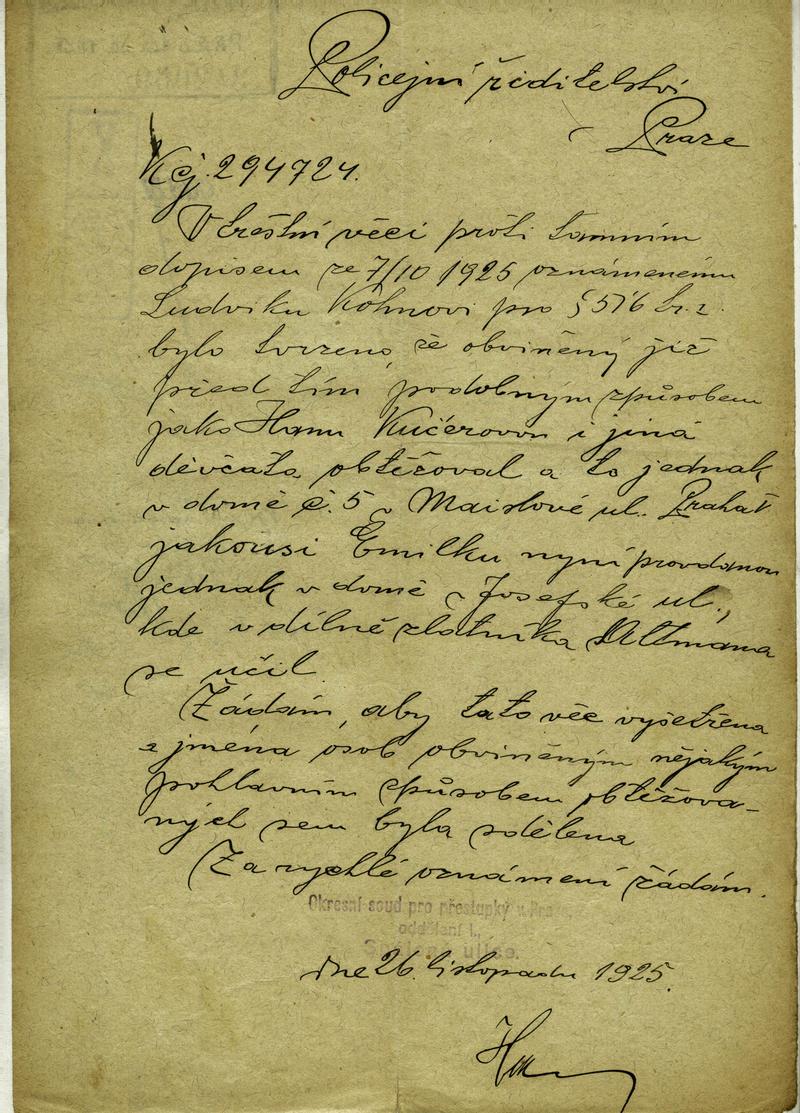 Policejní ředitelství
v Praze
K čj. 294724.
V trestní věci proti tamním
dopisem ze 7/10 1925 oznámenému
Ludvíku Kohnovi pro § 516 tr. z.
bylo tvrzeno, že obviněný již
před tím podobným způsobem
jako Hanu Kučerovou i jiná
děvčata obtěžoval a to jednak
v domě č. 5 v Maislové ul. Praha V
jakousi Emilku nyní provdanou
jednak v domě v Josefské ul.,
kde v dílně zlatníka se
se učil.
Žádám, aby tato věc vyšetřena
a jména osob obviněným nějakým
pohlavním způsobem obtěžova-
ných sem byla sdělena
Za rychlé oznámení žádám.
Okresní soud pro přestupky v Praze,
oddělení I.,
ulice.
dne 26. listopadu 1925.